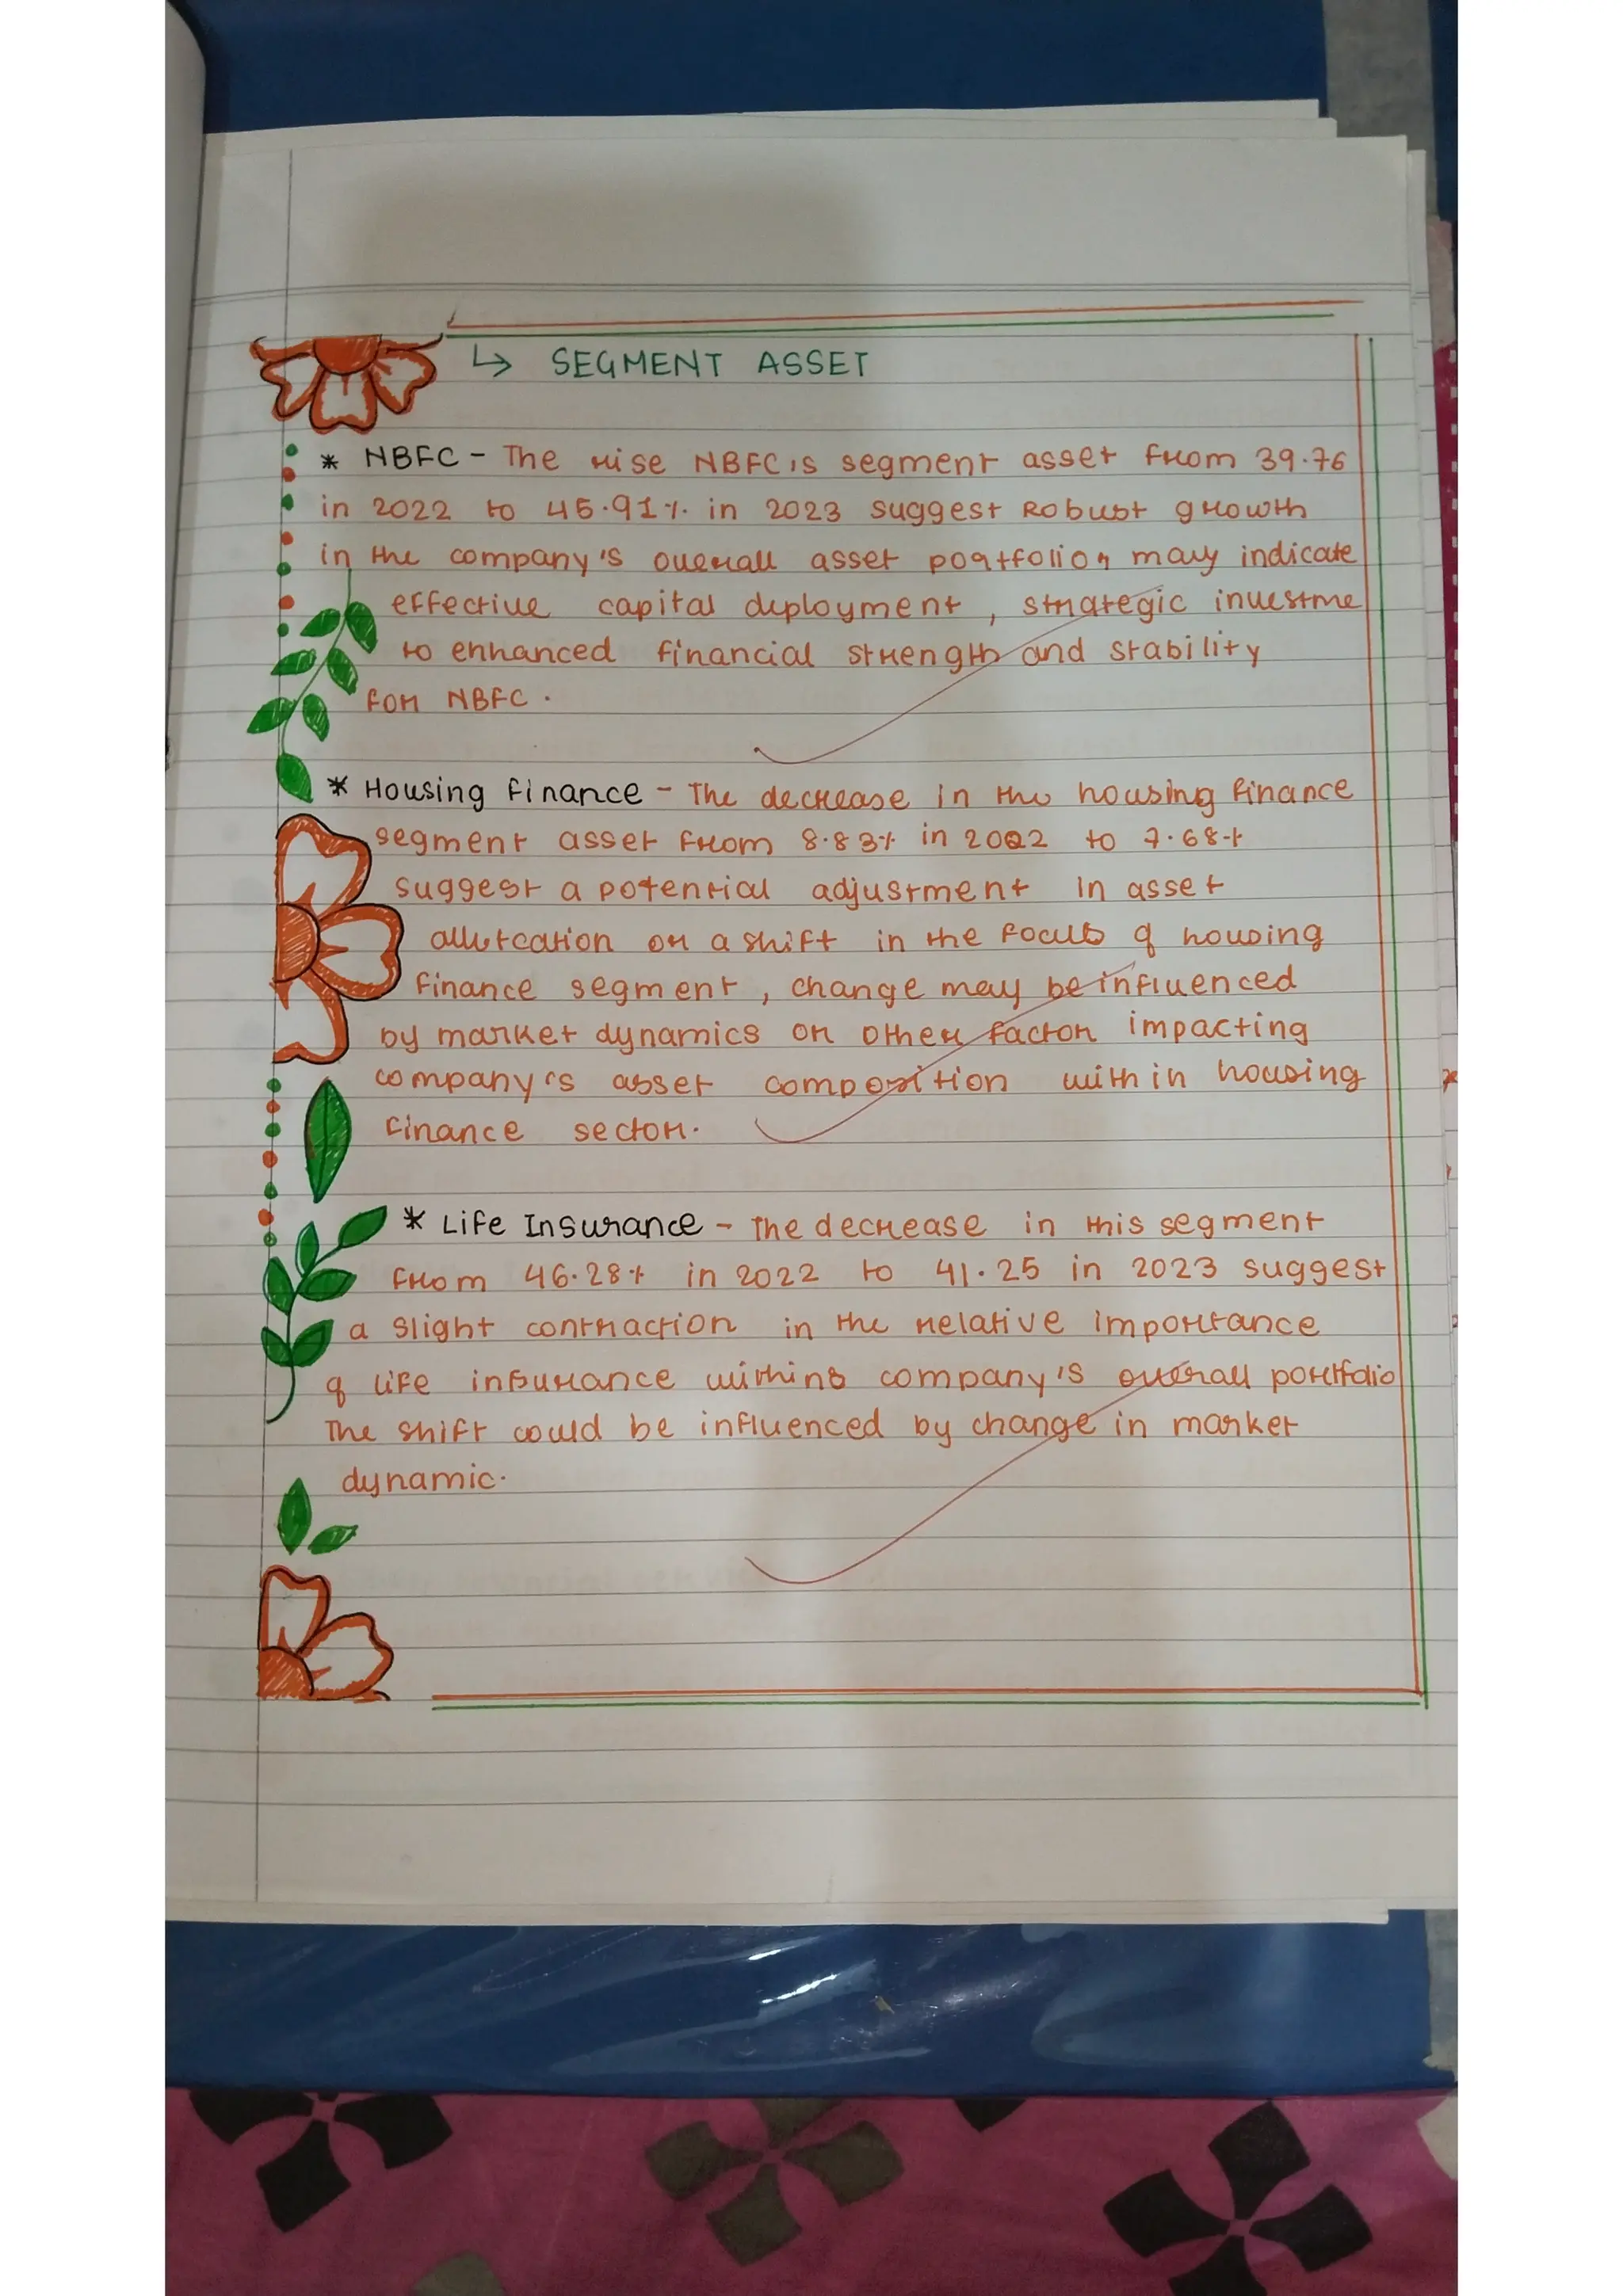 ↳ SEGMENT ASSET
* NBFC - The rise NBFC's segment asset from 39.76
in 2022 to 45.91% in 2023 suggest Robust growth
in the company's overall asset portfolio, may indicate
effective capital deployment, strategic investme
to enhanced financial strength and stability
for NBFC.
* Housing finance - The decrease in the housing finance
segment asset from 8.83% in 2022 to 7.68%
suggest a potential adjustment in asset
or a shift in the focus of housing
finance segment, change may be influenced
by market dynamics or other factor impacting
company's asset composition within housing
finance sector.
* Life Insurance - The decrease in this segment
from 46.28% in 2022 to 41.25 in 2023 suggest
a slight contraction in the relative importance
of life insurance withins company's overall portfolio
The shift could be influenced by change in market
dynamic.